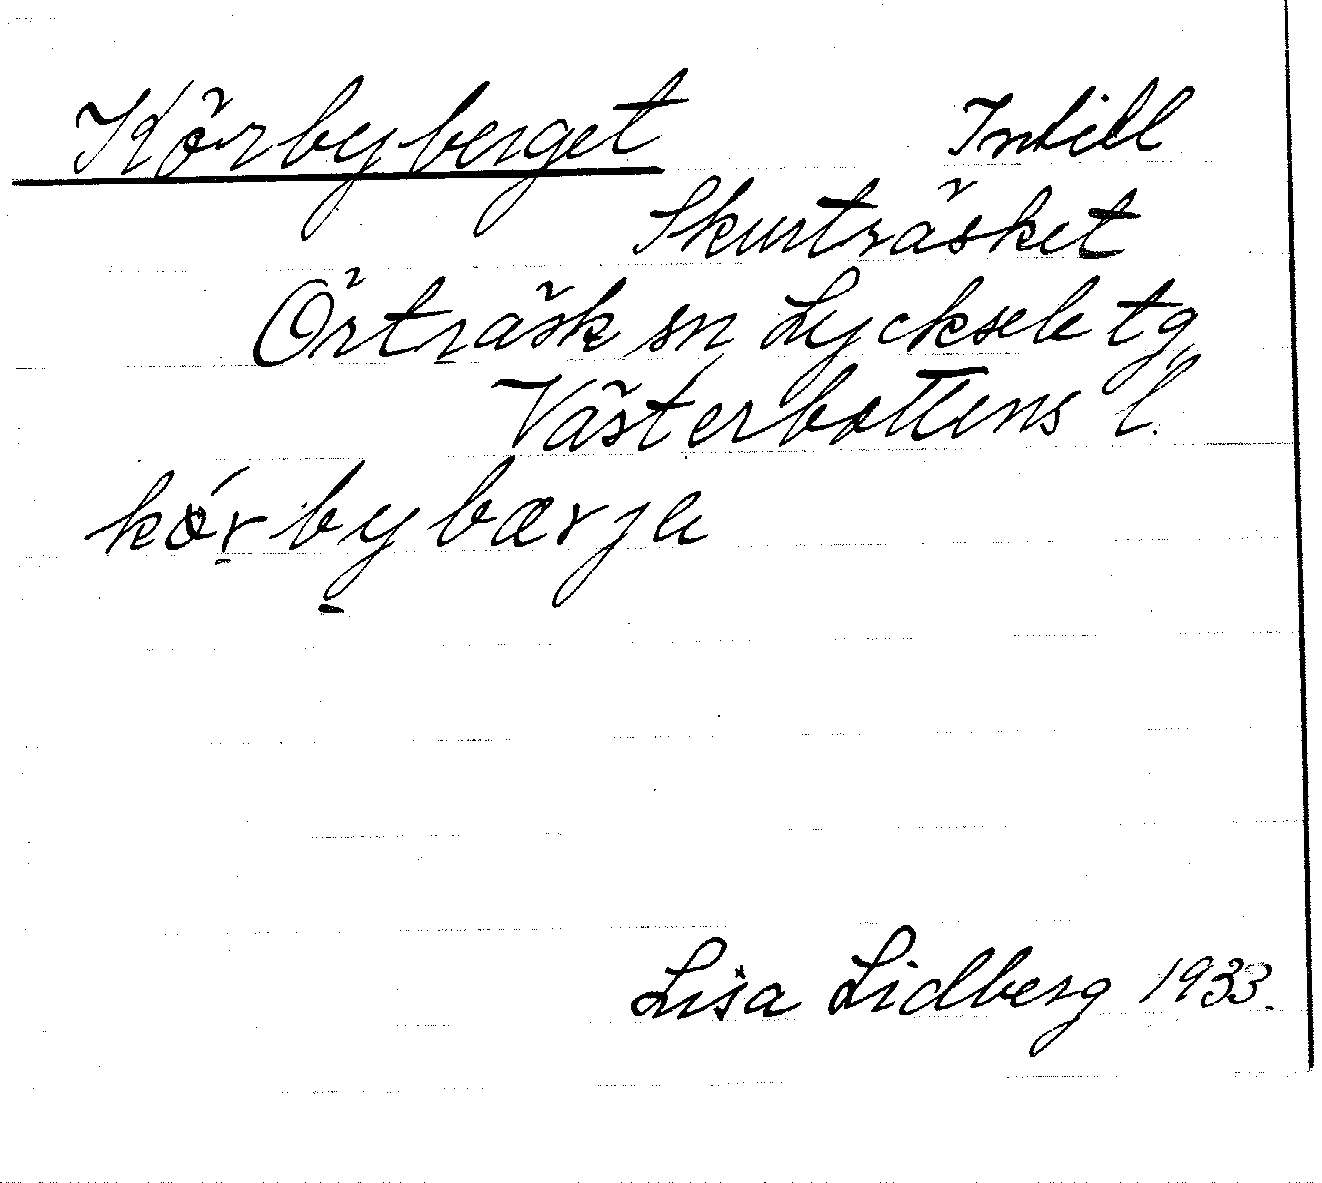 Körbyberget Intill
Skurträsket
Örträsk sn Lycksele tg
Västerbottens l.
kǿr by bærje
Lisa Lidberg 1933.